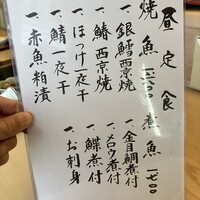 昼定食
焼魚 一二〇〇
一、銀鱈西京焼
一、鰆西京焼
一、ほっけ一夜干
一、鯖一夜干
一、赤魚粕漬
煮魚 一二〇〇
一、金目鯛煮付
一、メロウ煮付
一、鰈煮付
一、お刺身